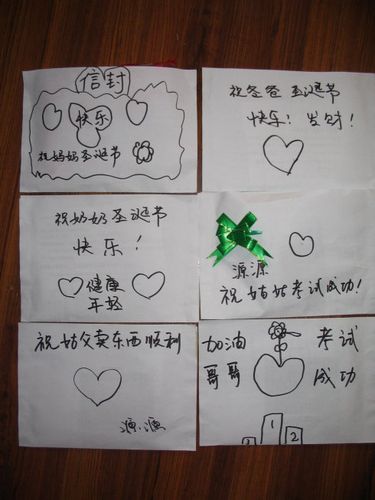 信封
快乐
祝妈妈圣诞节
祝爸爸圣诞节
快乐！发财！
祝奶奶圣诞节
快乐！
健康
年轻
源源
祝姑姑考试成功！
祝姑父卖东西顺利
源源
加油 考试
哥哥 成功
1
2